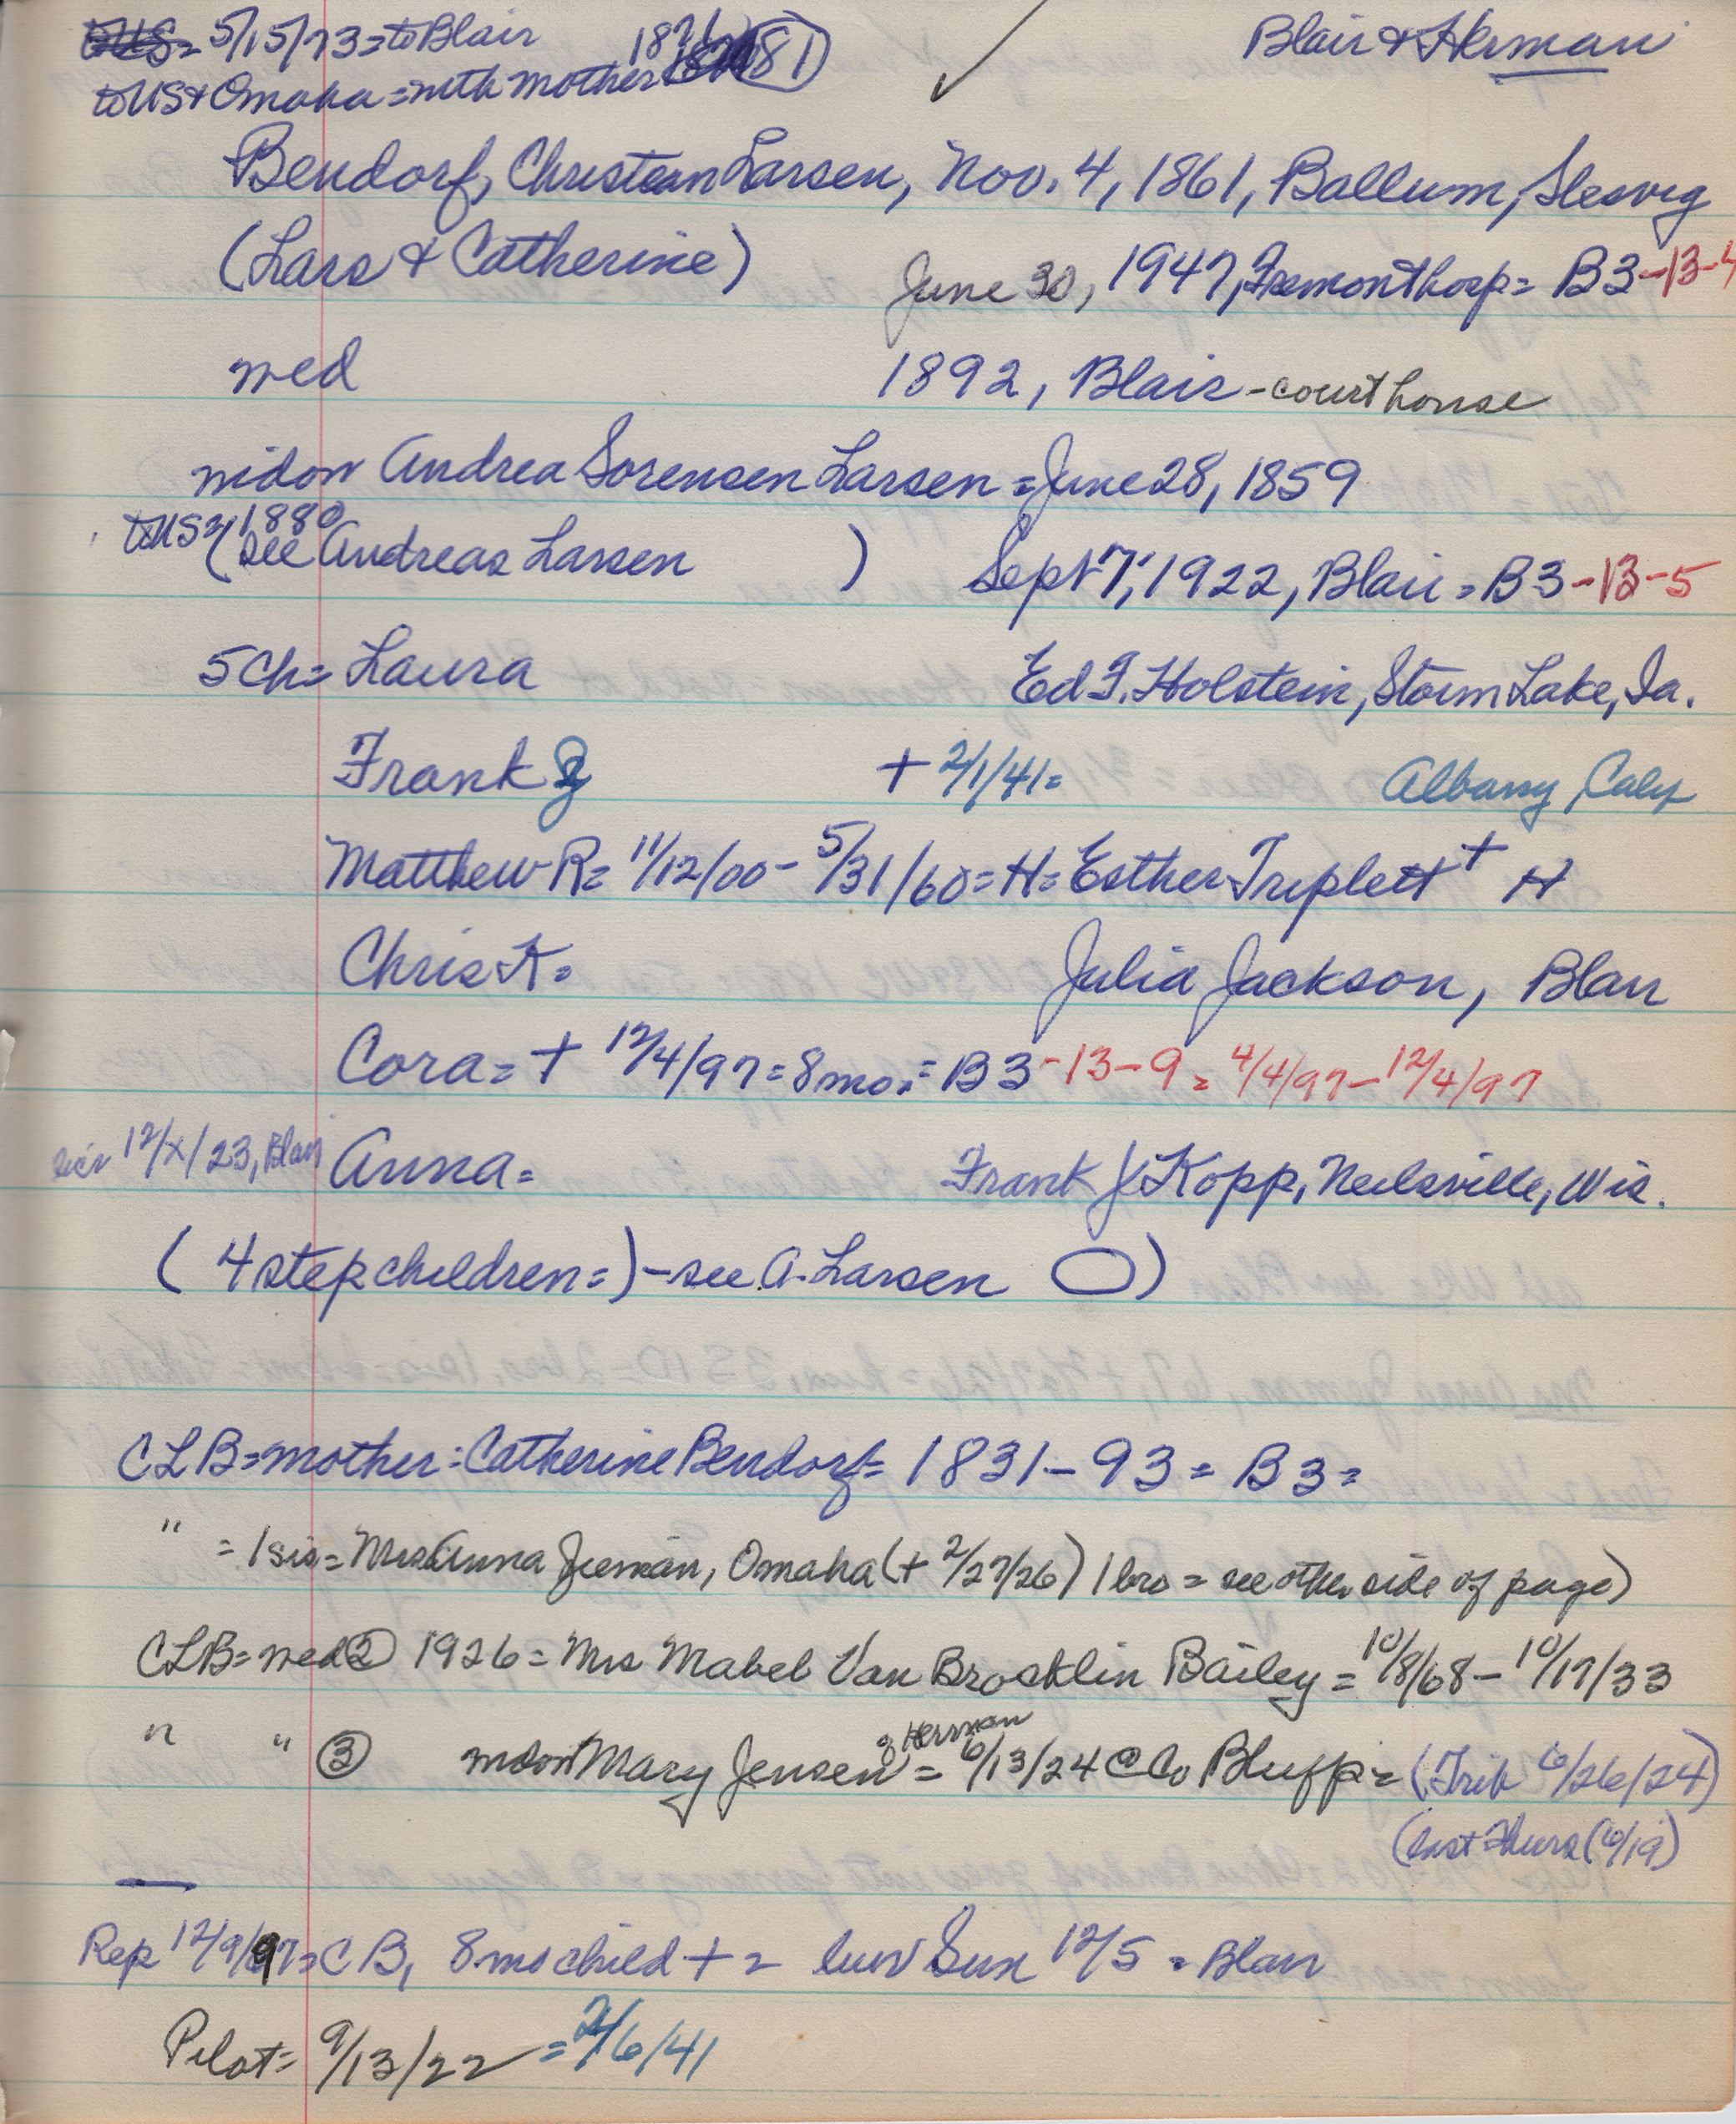 5/15/73=to Blair 1871 (81) Blair & Herman
to US & Omaha = with mother
Bendorf, Christean Larsen, Nov. 4, 1861, Ballum, Slesvig
(Lars & Catherine) June 30, 1947, Fremont hosp = B3-13-4
wed 1892, Blair - court house
widow Andrea Sorensen Larsen = June 28, 1859
to US = 1880
(see Andreas Larsen ) Sept 7, 1922, Blair = B3-13-5
5 Ch = Laura Ed J. Holstein, Storm Lake, Ia.
Frank + 2/1/41 = Albany, Calif
Matthew R = 11/12/00 - 5/31/60 = H = Esther Triplett + H
Chris K = Julia Jackson, Blair
Cora = + 12/4/97 = 8 mo. = B3-13-9 = 4/4/97 - 12/4/97
lic'n 12/x/23, Blair Anna = Frank J Kopp, Neilsville, Wis.
(4 stepchildren =) - see A. Larsen )
CLB = mother: Catherine Bendorf = 1831 - 93 = B3 =
" = 1 sis = Mrs Anna Jeeman, Omaha (+ 2/27/26) 1 bro = see other side of page)
CLB = wed (2) 1926 = Mrs Mabel Van Brocklin Bailey = 10/8/68 - 10/17/33
" " (3) widow Mary Jensen of Herman = 6/13/24 @ Co Bluffs = (Trib 6/26/24)
(last Thurs (6/19)
Rep 12/9/97 = CB, 8 mo child + = bur Sun 12/5 = Blair
Pilot = 9/13/22 = 2/6/41